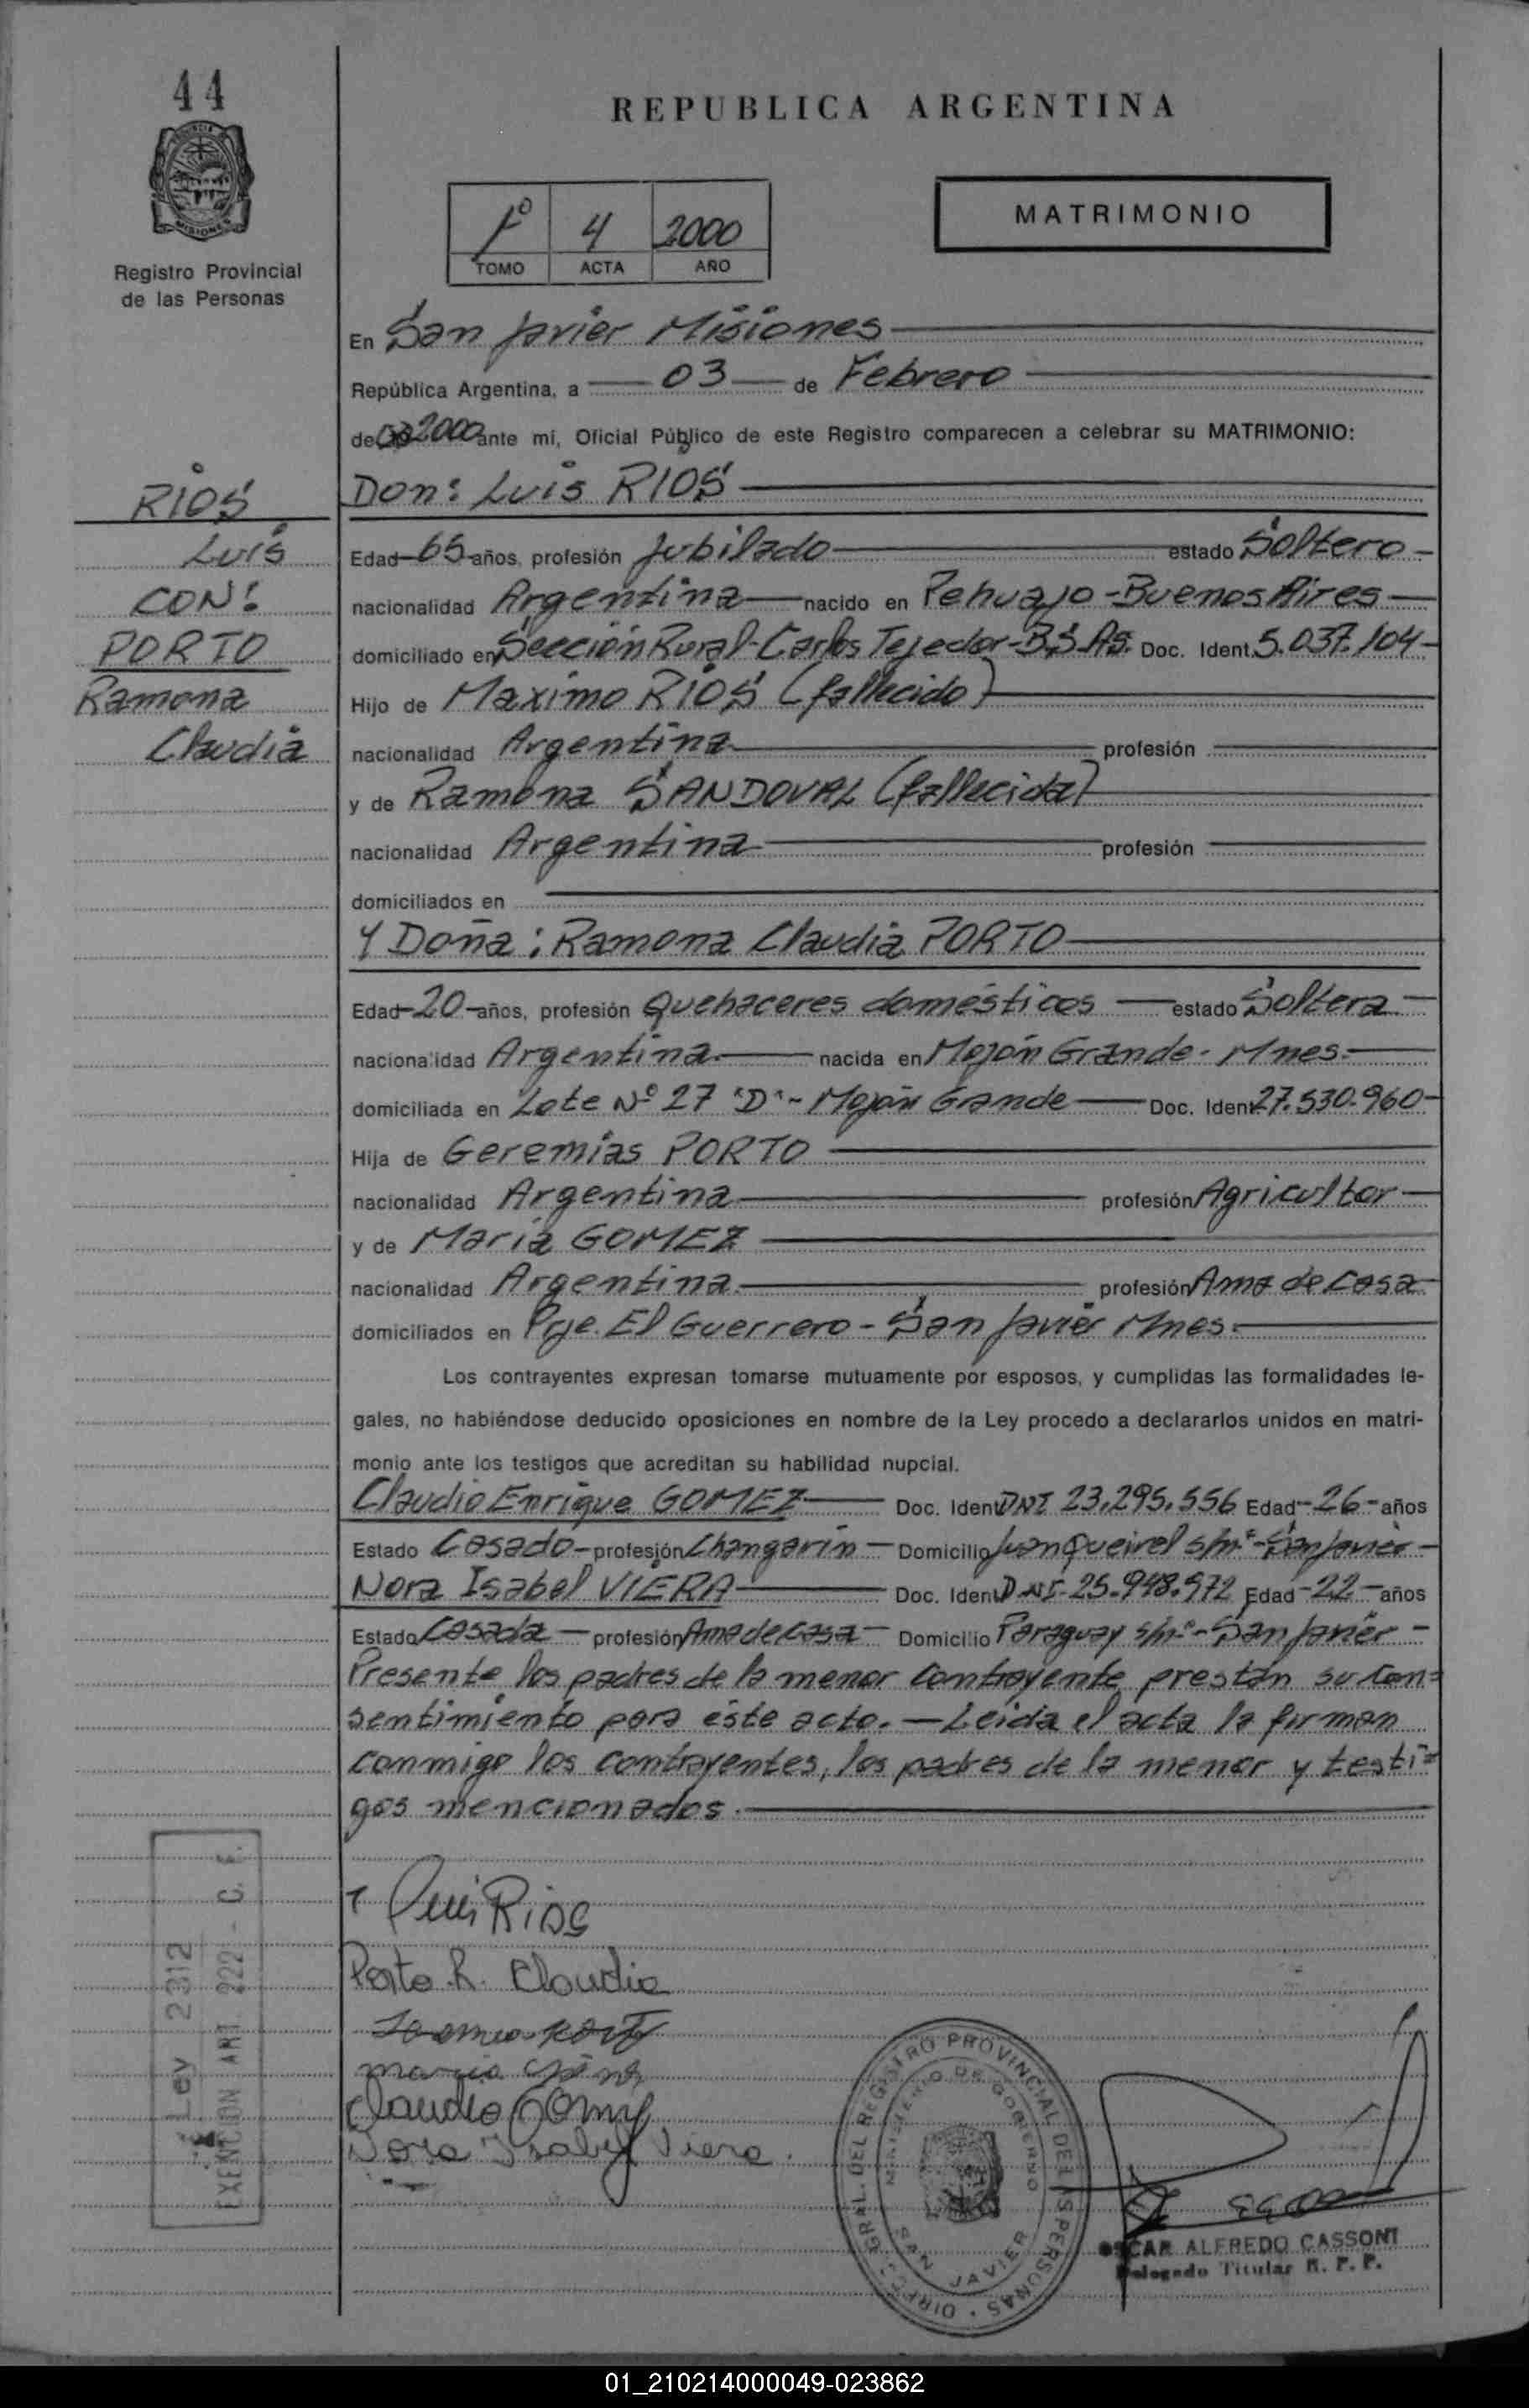 44
REPUBLICA ARGENTINA
MISIONES
Registro Provincial
de las Personas
1º 4 2000
TOMO ACTA AÑO
MATRIMONIO
En San Javier Misiones
República Argentina, a 03 de Febrero
de 2000 ante mí, Oficial Público de este Registro comparecen a celebrar su MATRIMONIO:
RIOS
Luis
CON:
PORTO
Ramona
Claudia
Don: Luis RIOS
Edad 65 años, profesión Jubilado estado Soltero
nacionalidad Argentina nacido en Pehuajo - Buenos Aires
domiciliado en Sección Rural - Carlos Tejedor - BS As. Doc. Ident. 5.037.104
Hijo de Maximo RIOS (fallecido)
nacionalidad Argentina profesión
y de Ramona SANDOVAL (fallecida)
nacionalidad Argentina profesión
domiciliados en
Y Doña: Ramona Claudia PORTO
Edad 20 años, profesión Quehaceres domésticos estado Soltera
nacionalidad Argentina nacida en Mojón Grande - Mnes.
domiciliada en Lote Nº 27 "D" - Mojón Grande Doc. Ident 27.530.960
Hija de Geremias PORTO
nacionalidad Argentina profesión Agricultor
y de María GOMEZ
nacionalidad Argentina profesión Ama de Casa
domiciliados en Pje. El Guerrero - San Javier Mnes.
Los contrayentes expresan tomarse mutuamente por esposos, y cumplidas las formalidades le-
gales, no habiéndose deducido oposiciones en nombre de la Ley procedo a declararlos unidos en matri-
monio ante los testigos que acreditan su habilidad nupcial.
Claudio Enrique GOMEZ Doc. Ident DNI 23.295.556 Edad 26 años
Estado Casado profesión Changarín Domicilio Juan Queirel s/nº - San Javier
Nora Isabel VIERA Doc. Ident DNI 25.948.972 Edad 22 años
Estado Casada profesión Ama de casa Domicilio Paraguay s/nº - San Javier
Presente los padres de la menor contrayente prestan su con=
sentimiento para éste acto. - Leída el acta la firman
conmigo los contrayentes, los padres de la menor y testi=
gos mencionados.
Luis Rios
Porto R. Claudia
Claudio Gomez
Nora Isabel Viera
Ley 2312
EXENCION ART. 222 - C. F.
DIREC. GRAL. DEL REGISTRO PROVINCIAL DE LAS PERSONAS
MINISTERIO DE GOBIERNO
SAN JAVIER
OSCAR ALFREDO CASSONI
Delegado Titular R. P. P.
01_210214000049-023862